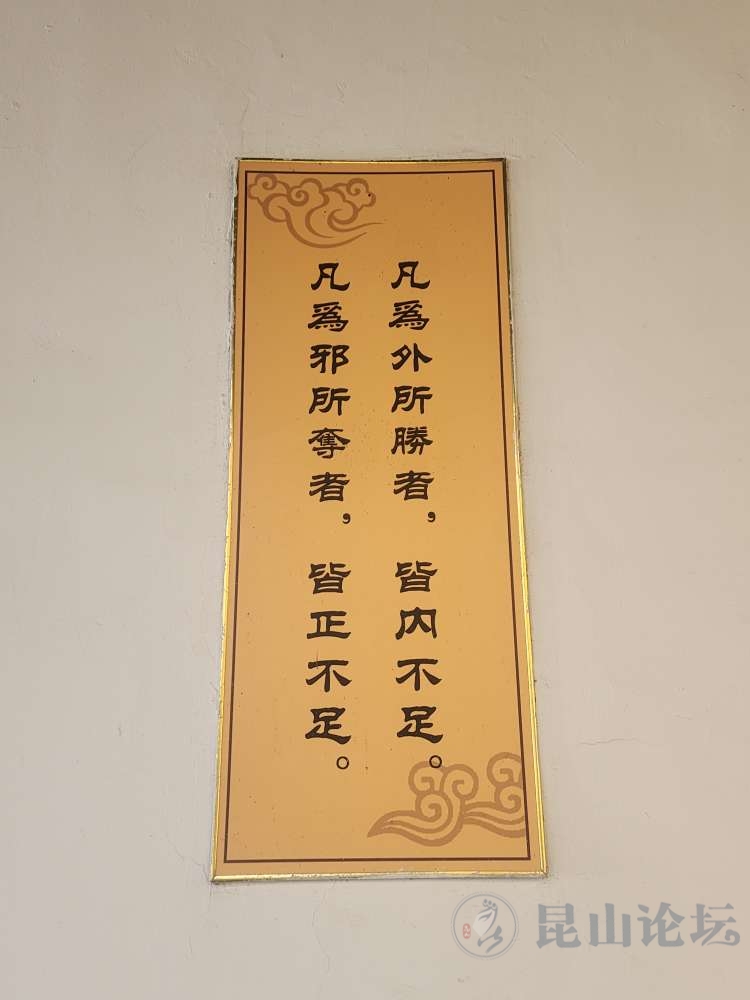 凡為外所勝者，皆內不足。
凡為邪所奪者，皆正不足。
昆山论坛